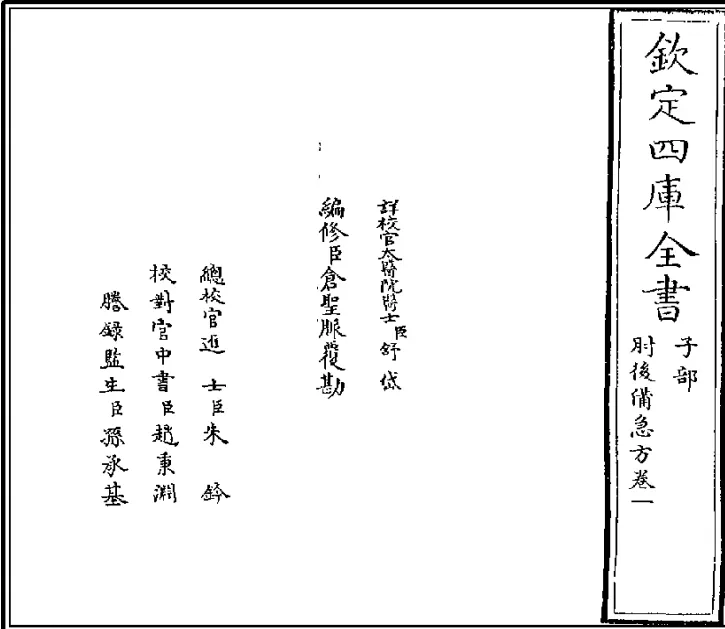 欽定四庫全書
子部
肘後備急方卷一
詳校官太醫院醫士臣舒岱
編修臣倉聖脈覆勘
總校官進士臣朱鈐
校對官中書臣趙秉淵
謄錄監生臣孫承基